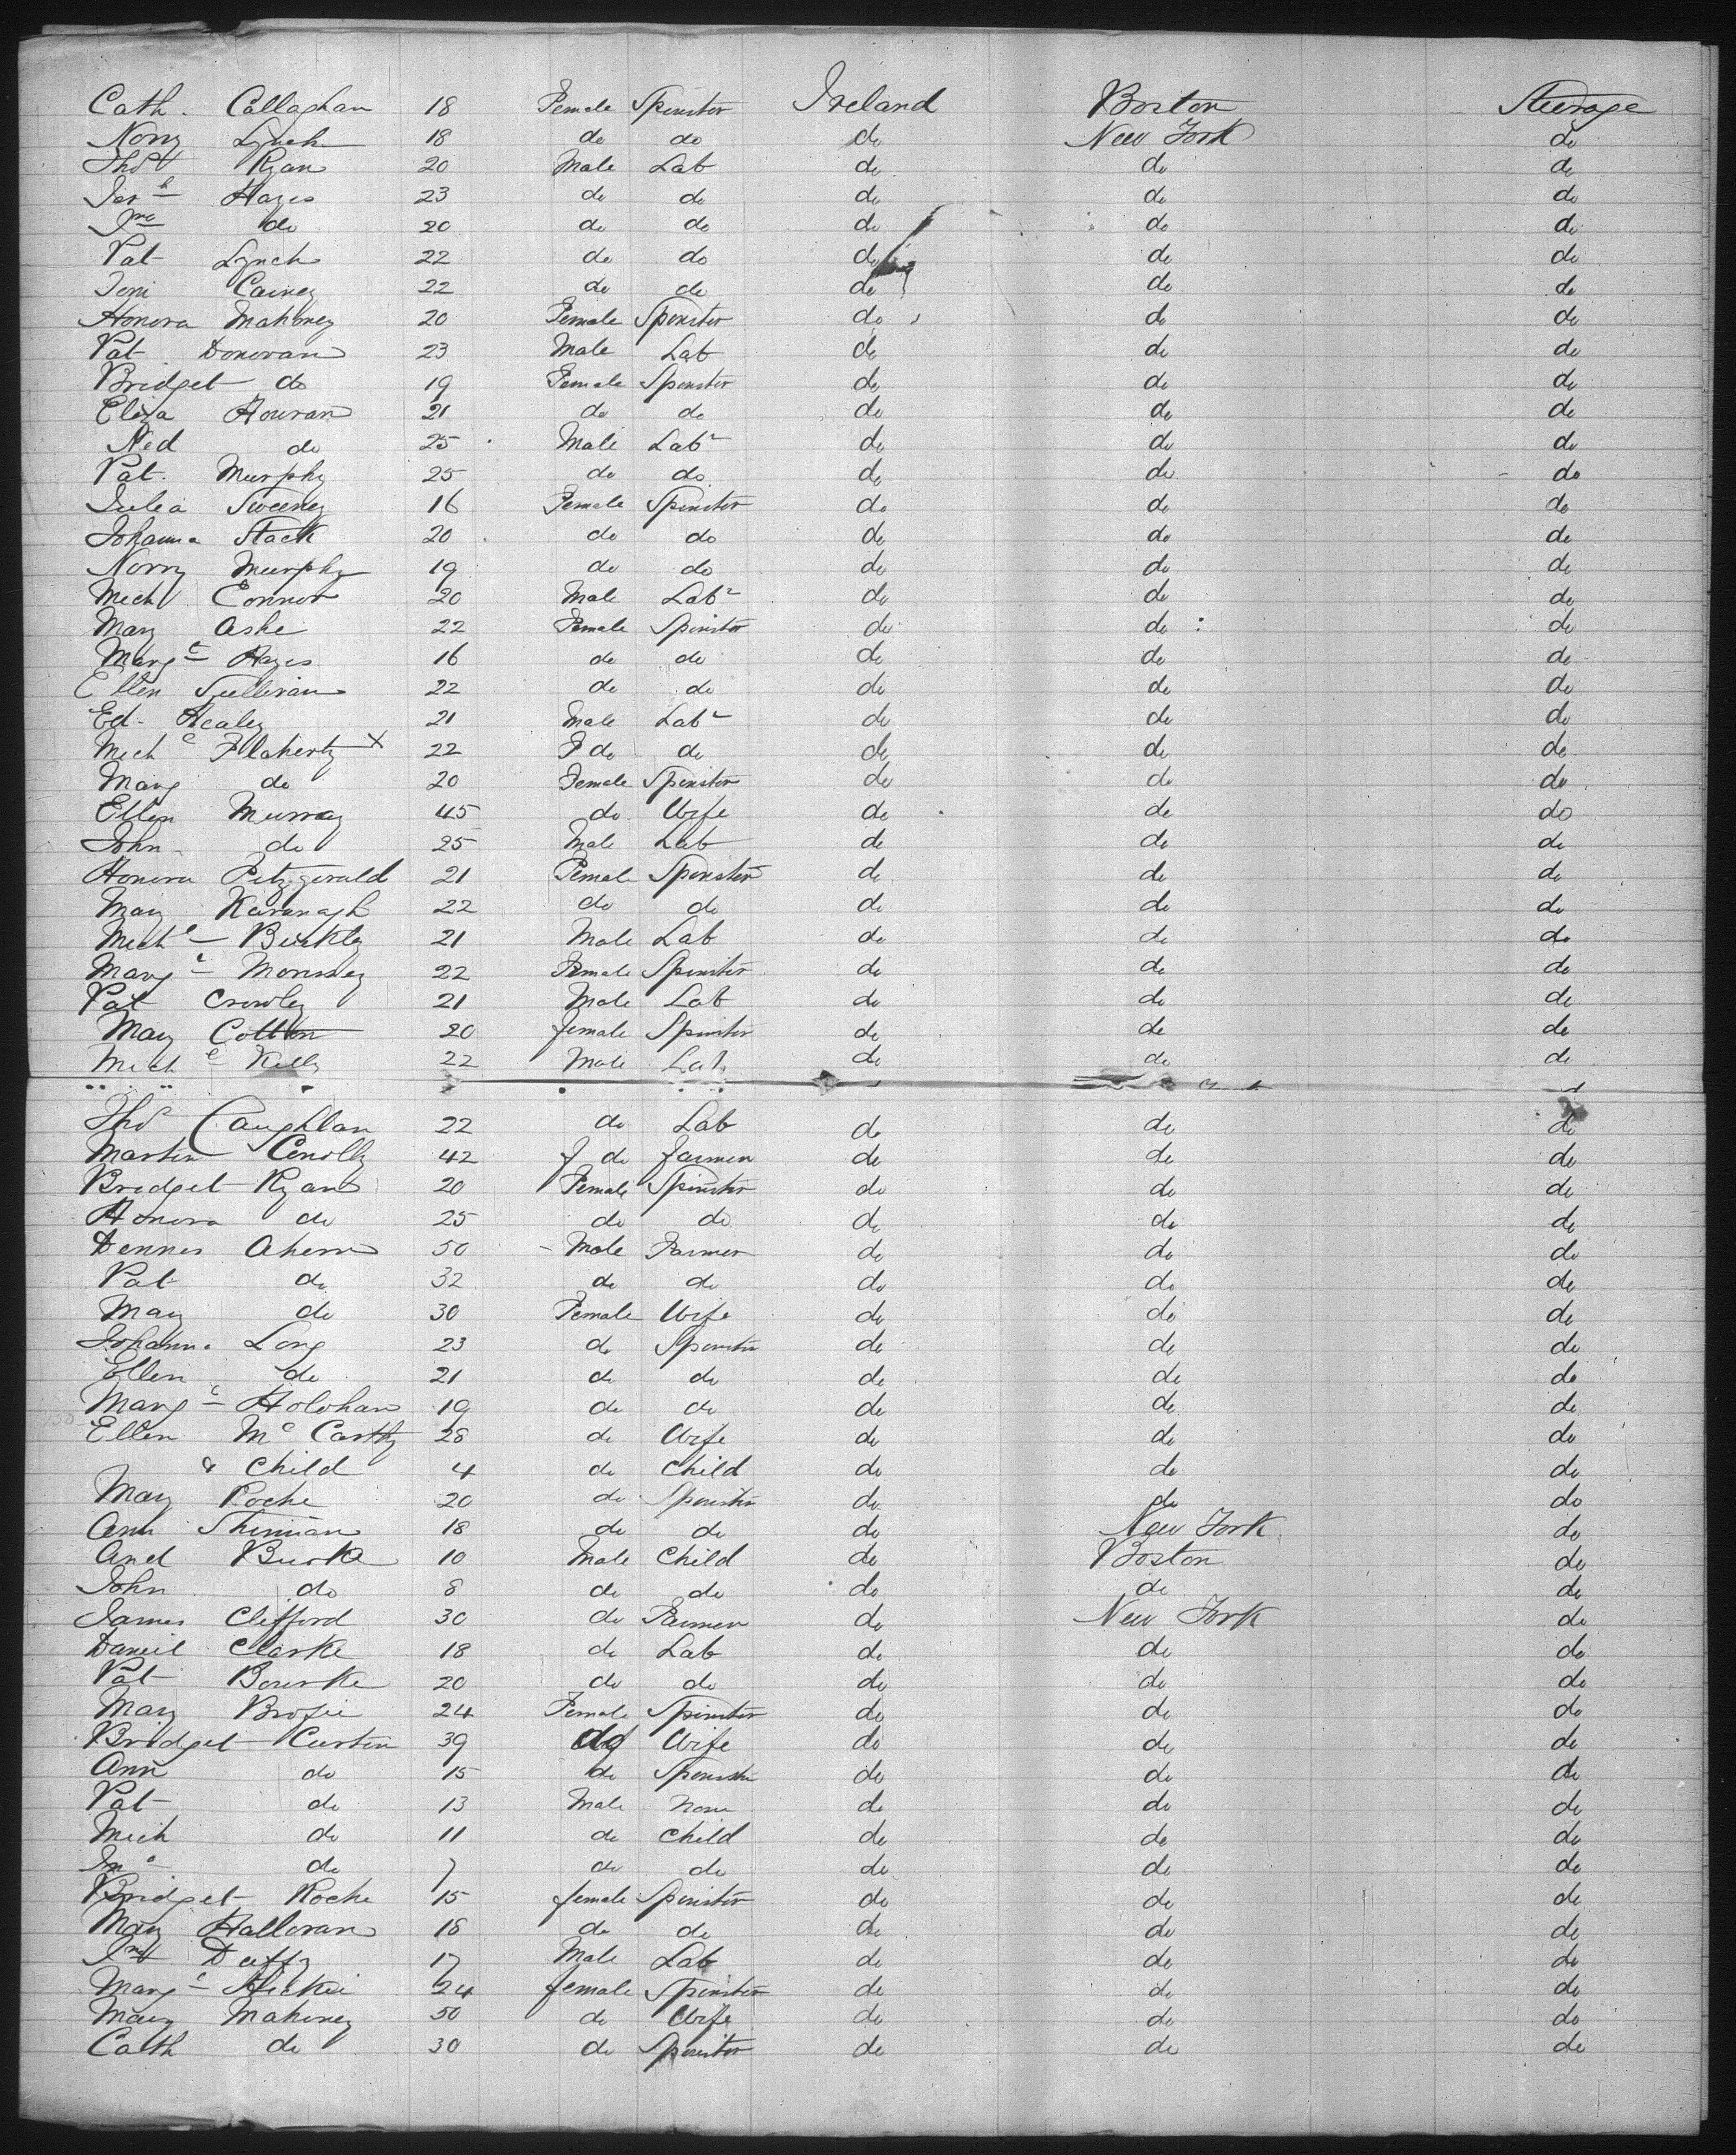 Cath. Callaghan 18 Female Spinster Ireland Boston Steerage
Norry Lynch 18 do do do New York do
Thos Ryan 20 Male Lab do do do
Jerh Hayes 23 do do do do do
Jno do 20 do do do do do
Pat Lynch 22 do do do do do
Tom Cainey 22 do do do do do
Honora Mahoney 20 Female Spinster do do do
Pat Donovan 23 Male Lab do do do
Bridget do 19 Female Spinster do do do
Eliza Houran 21 do do do do do
Ned do 25 Male Labr do do do
Pat. Murphy 25 do do do do do
Julia Sweeney 16 Female Spinster do do do
Johanna Stack 20 do do do do do
Norry Murphy 19 do do do do do
Mich Connor 20 Male Labr do do do
Mary Ashe 22 Female Spinster do do do
Margt Hayes 16 do do do do do
Ellen Sullivan 22 do do do do do
Ed. Healey 21 Male Labr do do do
Michl Flaherty X 22 do do do do do
Mary do 20 Female Spinster do do do
Ellen Murray 45 do Wife do do do
John do 25 Male Lab do do do
Honora Fitzgerald 21 Female Spinster do do do
Mary Kavanagh 22 do do do do do
Michl Buckley 21 Male Lab do do do
Margt 22 Female Spinster do do do
Pat Crowley 21 Male Lab do do do
Mary Cotton 20 female Spinster do do do
Michl Kelly 22 Male Lab do do do
Thos Caughlan 22 do Lab do do do
Martin Conolly 42 do farmer do do do
Bridget Ryan 20 Female Spinster do do do
Honora do 25 do do do do do
Dennis Ahern 50 Male Farmer do do do
Pat do 32 do do do do do
Mary do 30 Female Wife do do do
Johanna Long 23 do Spinster do do do
Ellen do 21 do do do do do
Margt Holohan 19 do do do do do
Ellen McCarthy 28 do Wife do do do
& Child 4 do Child do do do
Mary Roche 20 do Spinster do do do
Ann 18 do do do New York do
And Burke 10 Male Child do Boston do
John do 8 do do do do do
James Clifford 30 do Farmer do New York do
Daniel Clarke 18 do Lab do do do
Pat Bourke 20 do do do do do
Mary 24 Female Spinster do do do
Bridget Curtin 39 do Wife do do do
Ann do 15 do Spinster do do do
Pat do 13 Male None do do do
Mich do 11 do Child do do do
Jno do 7 do do do do do
Bridget Roche 15 female Spinster do do do
Mary Halloran 18 do do do do do
Jno Duffy 17 Male Lab do do do
Margt Hickie 24 female Spinster do do do
Mary Mahoney 50 do Wife do do do
Cath do 30 do Spinster do do do